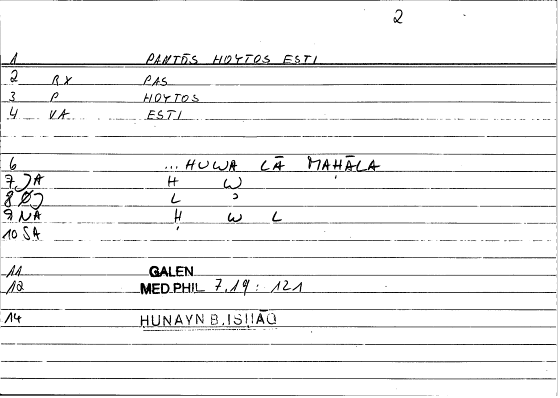 2
1 PANTŌS HOYTOS ESTI
2 RX PAS
3 P HOYTOS
4 VA ESTI
6 ... HUWA LĀ MAḤĀLA
7 JA H W
8 ØJ L ʾ
9 NA Ḥ W L
10 SA
11 GALEN
12 MED.PHIL 7,19 : 121
14 HUNAYN B.ISḤĀQ